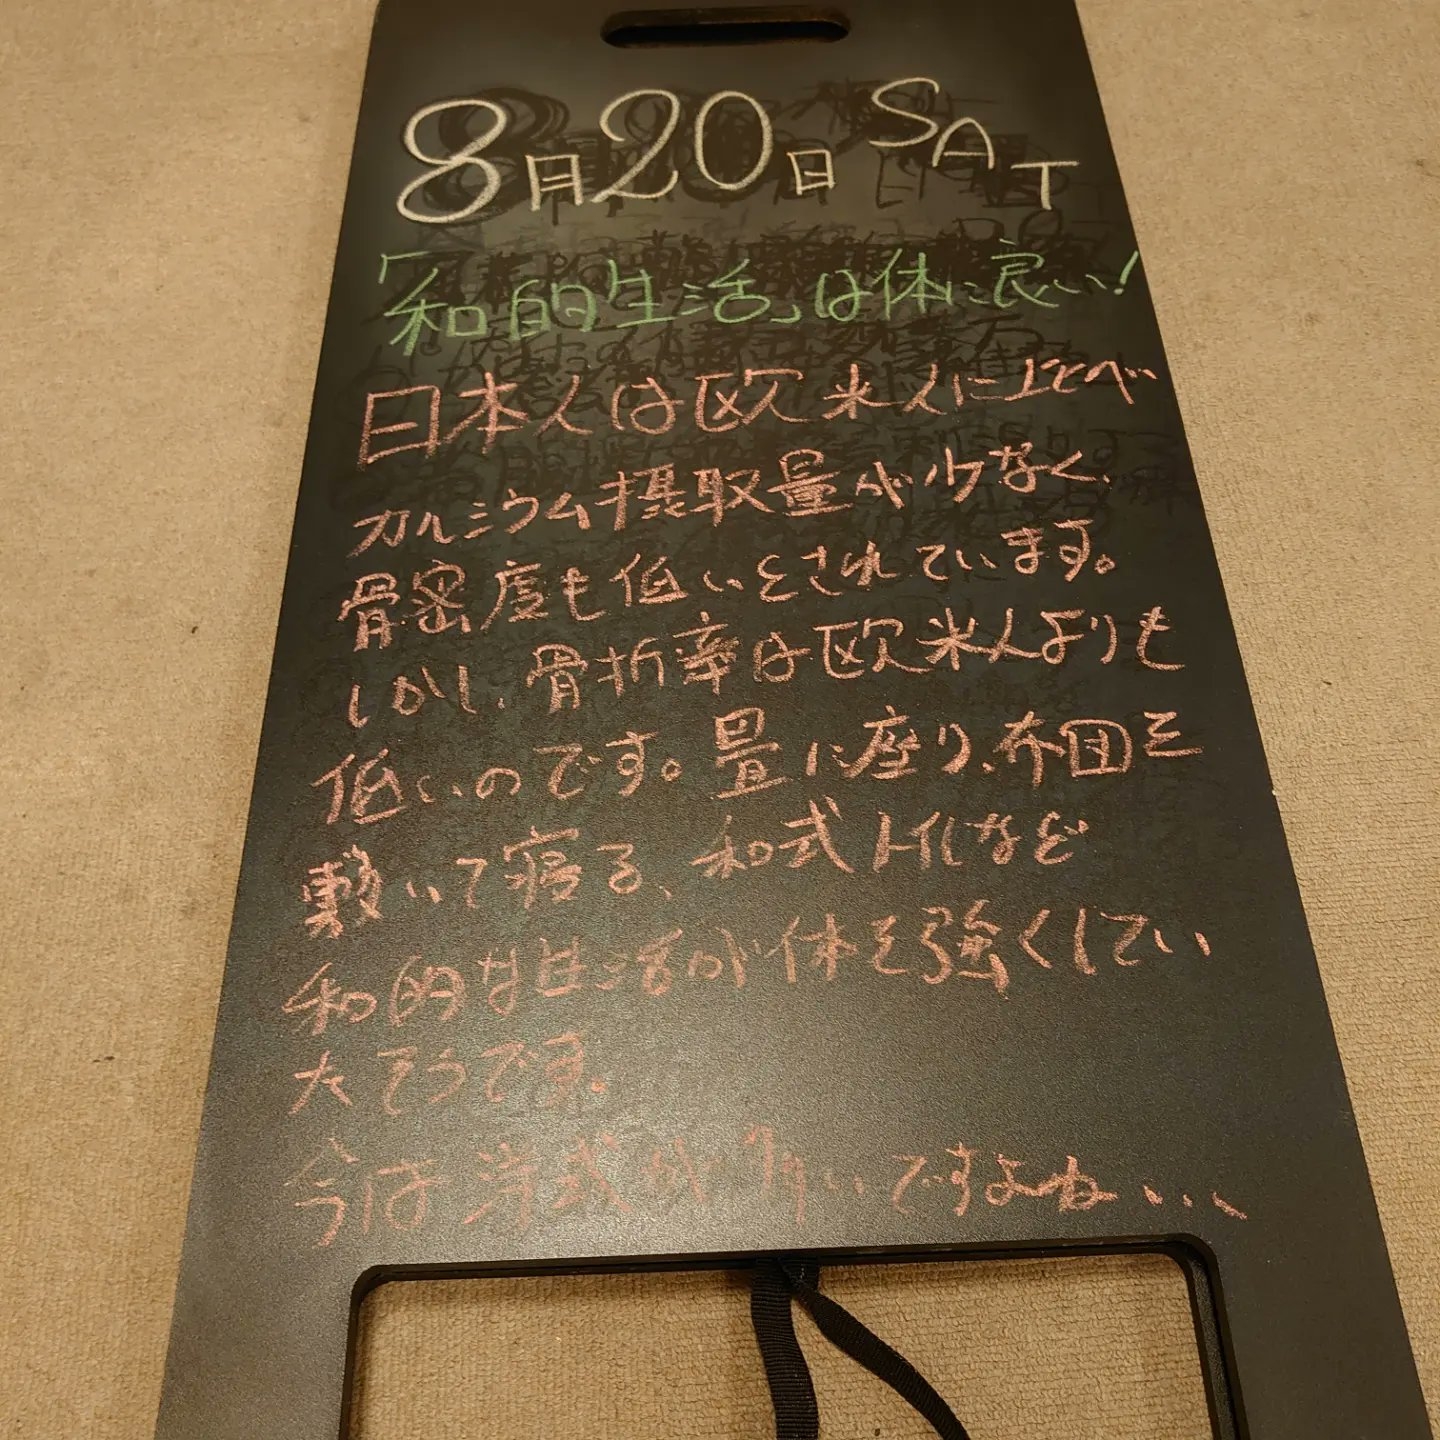 8月20日 SAT
「和的生活」は体に良い!
日本人は欧米人に比べ
カルシウム摂取量が少なく、
骨密度も低いとされています。
しかし、骨折率は欧米人よりも
低いのです。畳に座り、布団を
敷いて寝る、和式トイレなど
和的な生活が体を強くしてい
たそうです。
今は洋式が多いですよね、、、